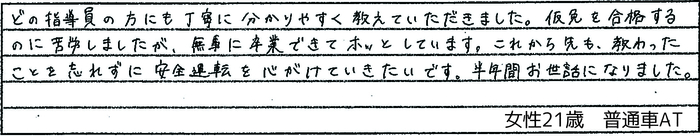 どの指導員の方にも丁寧に分かりやすく教えていただきました。仮免を合格する
のに苦労しましたが、無事に卒業できてホッとしています。これから先も、教わった
ことを忘れずに安全運転を心がけていきたいです。半年間お世話になりました。
女性21歳　普通車AT